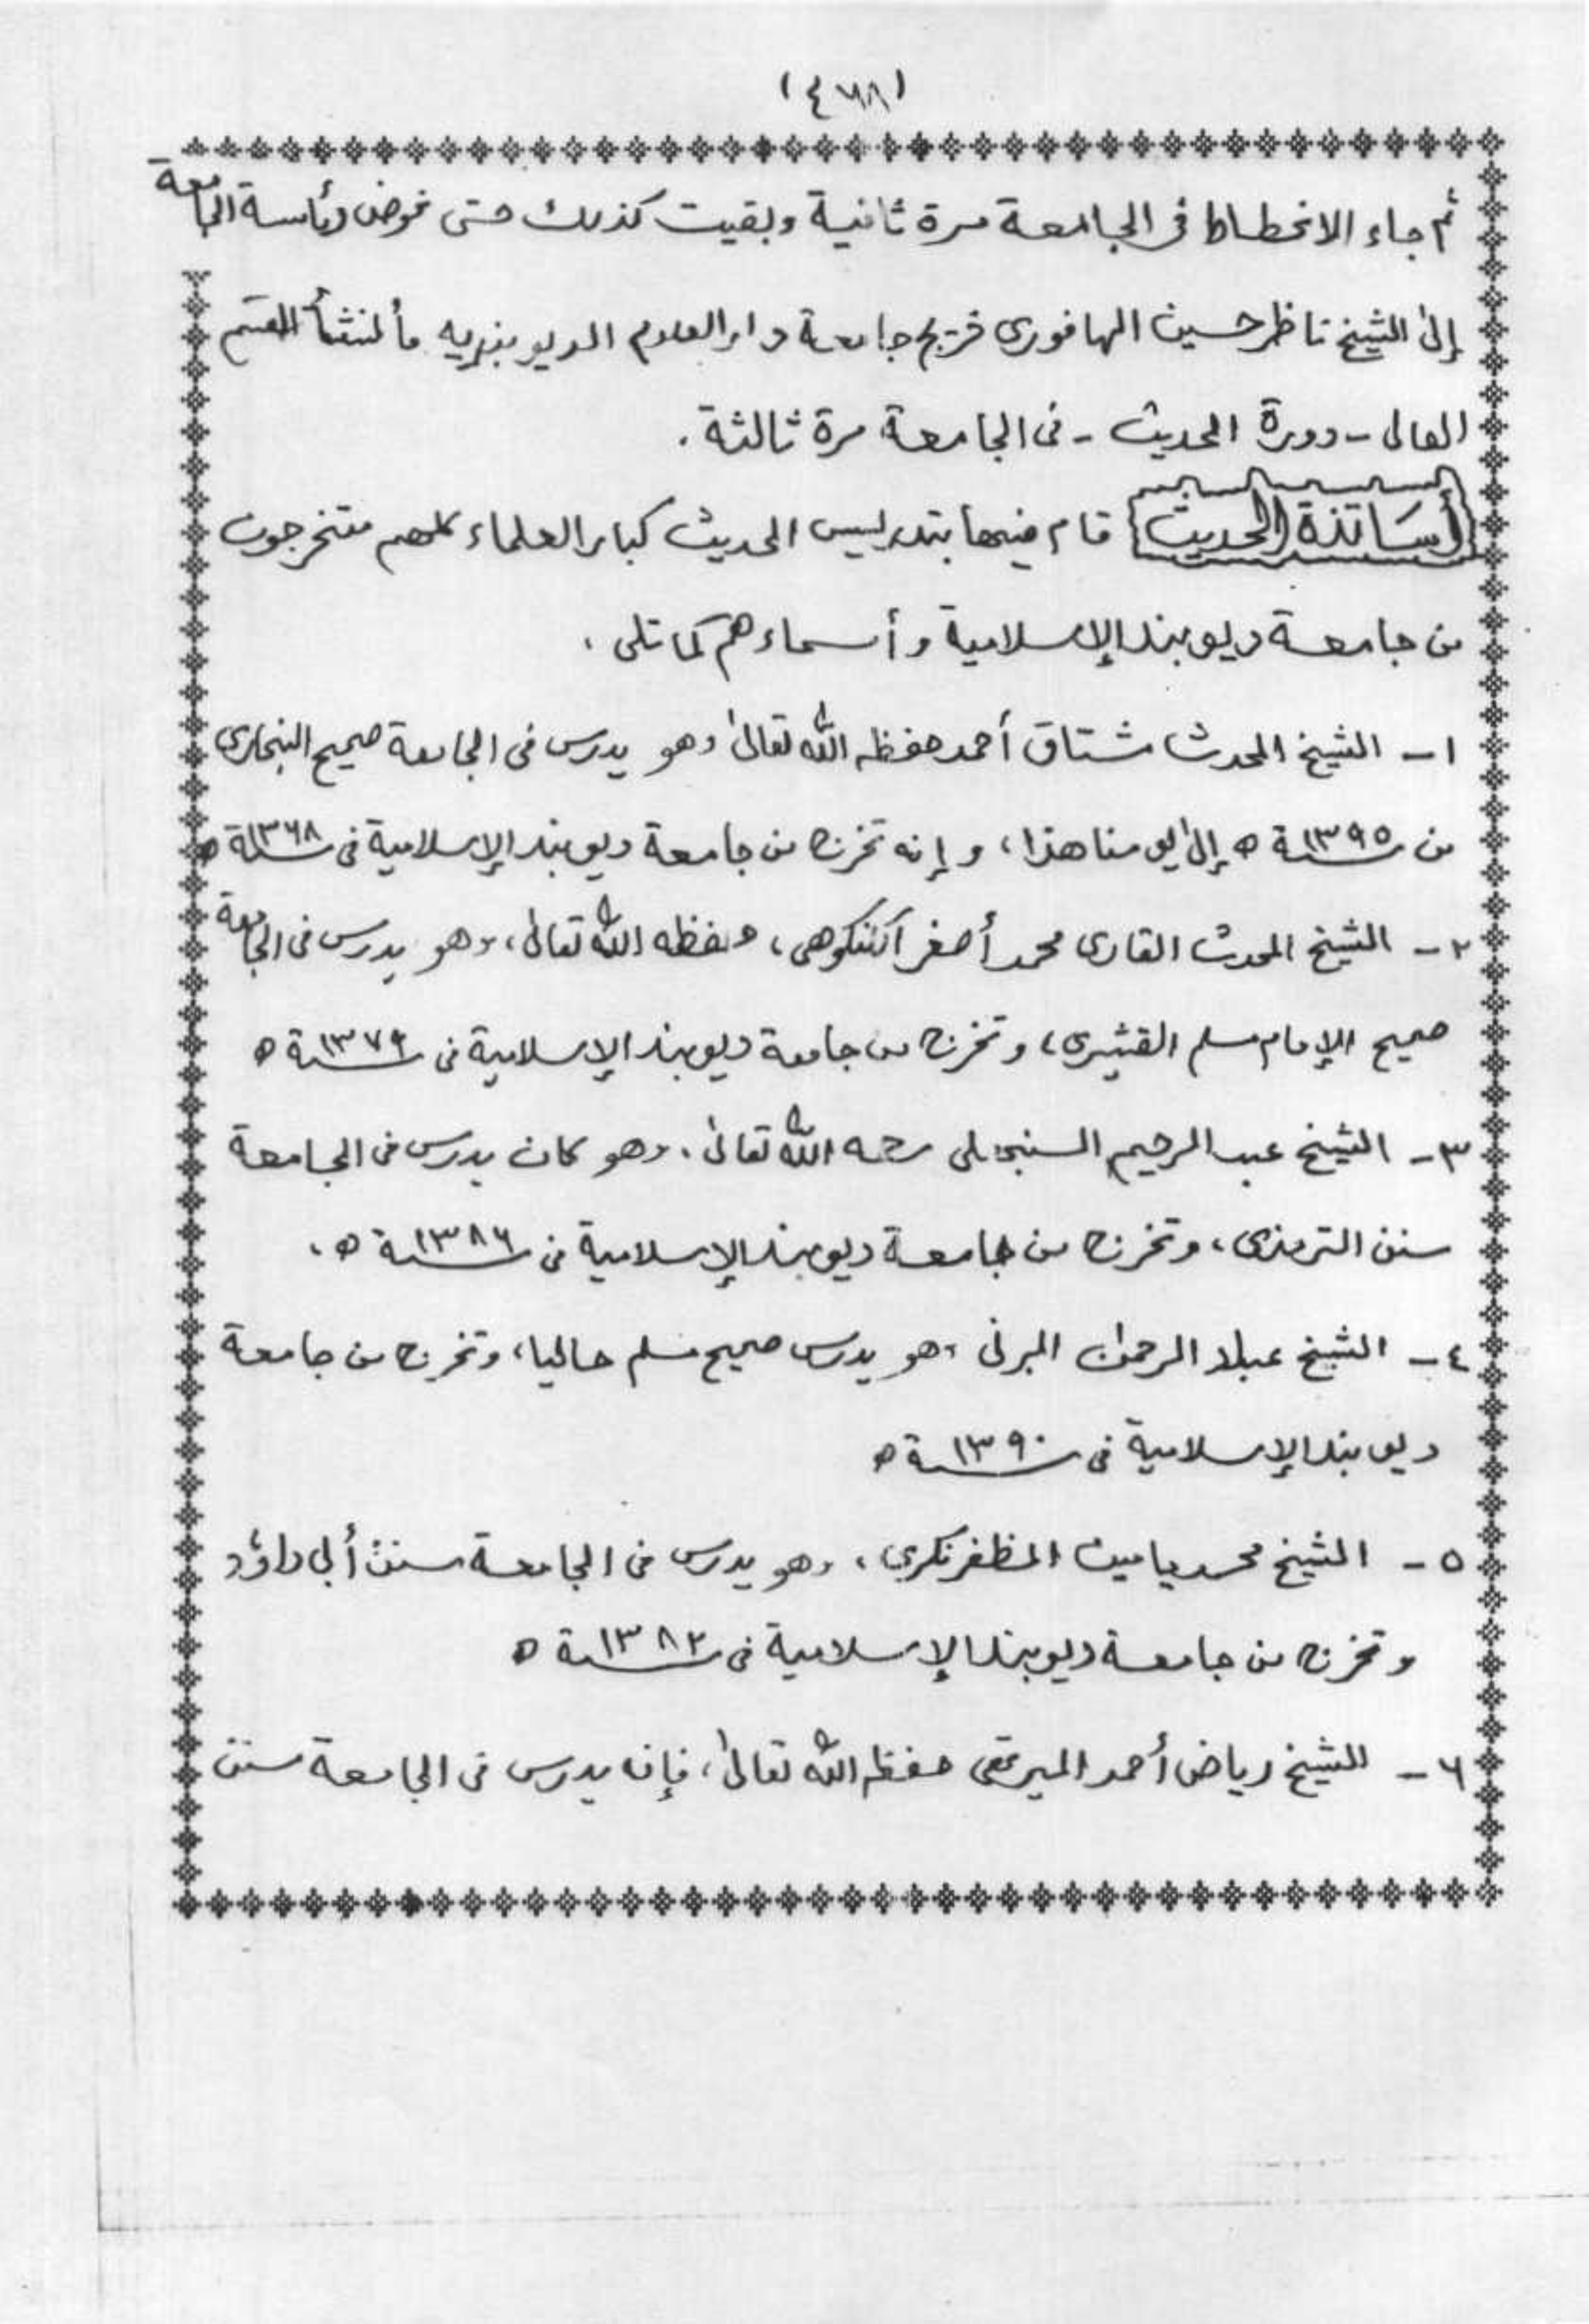 (٤٦٨)
ثم جاء الانحطاط في الجامعة مرة ثانية وبقيت كذلك حتى فوض رئاسة الجامعة
إلى الشيخ ناظر حسين الهافوري خريج جامعة دار العلوم الديوبنديه فأنشأ القسم
العالى - دورة الحديث - فى الجامعة مرة ثالثة .
أساتذة الحديث قام فيها بتدريس الحديث كبار العلماء كلهم متخرجون
من جامعة ديوبند الإسلامية وأسماءهم كما تلى .
١ - الشيخ المحدث مشتاق أحمد حفظه الله تعالى وهو يدرس فى الجامعة صحيح البخارى
من سنة ١٣٩٥ ھ إلى يومنا هذا، وإنه تخرج من جامعة ديوبند الإسلامية فى سنة ١٣٦٨ ھ
٢ - الشيخ المحدث القارى محمد أصغر الكنكوهى، حفظه الله تعالى، وهو يدرس فى الجامعة
صحيح الإمام مسلم القشيرى، وتخرج من جامعة ديوبند الإسلامية فى سنة ١٣٧٩ ھ
٣ - الشيخ عبد الرحيم السنبهلى رحمه الله تعالى، وهو كان يدرس فى الجامعة
سنن الترمذى، وتخرج من جامعة ديوبند الإسلامية فى سنة ١٣٨٦ ھ،
٤ - الشيخ عبد الرحمن البرنى وهو يدرس صحيح مسلم حاليا، وتخرج من جامعة
ديوبند الإسلامية فى سنة ١٣٩٠ ھ
٥ - الشيخ محمد يامين المظفرنكرى، وهو يدرس فى الجامعة سنن أبى داؤد
وتخرج من جامعة ديوبند الإسلامية فى سنة ١٣٨٢ ھ
٦ - الشيخ رياض أحمد الميرتهى حفظه الله تعالى، فإنه يدرس فى الجامعة سنن